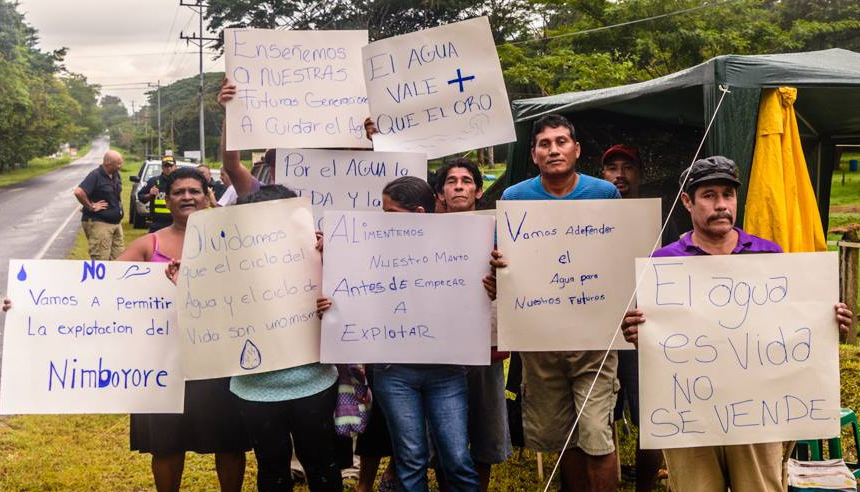 Enseñemos
a nuestras
Futuras Generacione
A Cuidar el Ag
El Agua
VALE +
QUE EL ORO
Por el AGUA LA
IDA Y la
NO
Vamos A Permitir
La explotacion del
Nimboyore
Olvidamos
que el ciclo del
Agua y el ciclo de
Vida son uno mism
ALimentemos
Nuestro Manto
Antes de Empezar
A
EXPLOTAR
Vamos A defender
el
Agua para
Nuestros Futuros
El agua
es vida
NO
SE VENDE